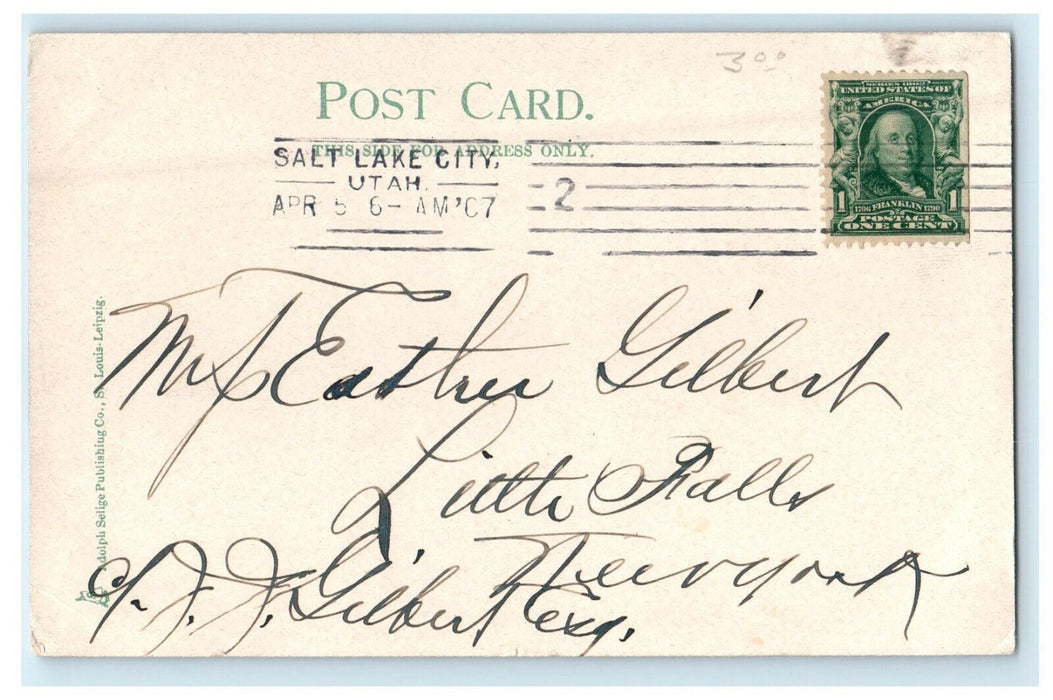 3 00
POST CARD.
THIS SIDE FOR ADDRESS ONLY.
SALT LAKE CITY,
UTAH.
APR 5 6- AM '07
2
SERIES 1902
UNITED STATES OF
AMERICA
1 1
1706 FRANKLIN 1790
POSTAGE
ONE CENT
Adolph Selige Publishing Co., St. Louis-Leipzig.
Esther Gilbert
Little Falls
New york
J. J. Gilbert Esq.